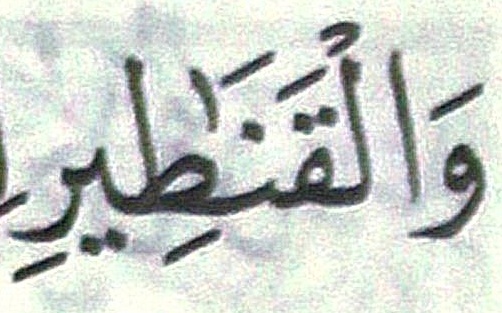 وَالْقَنَٰطِيرِ